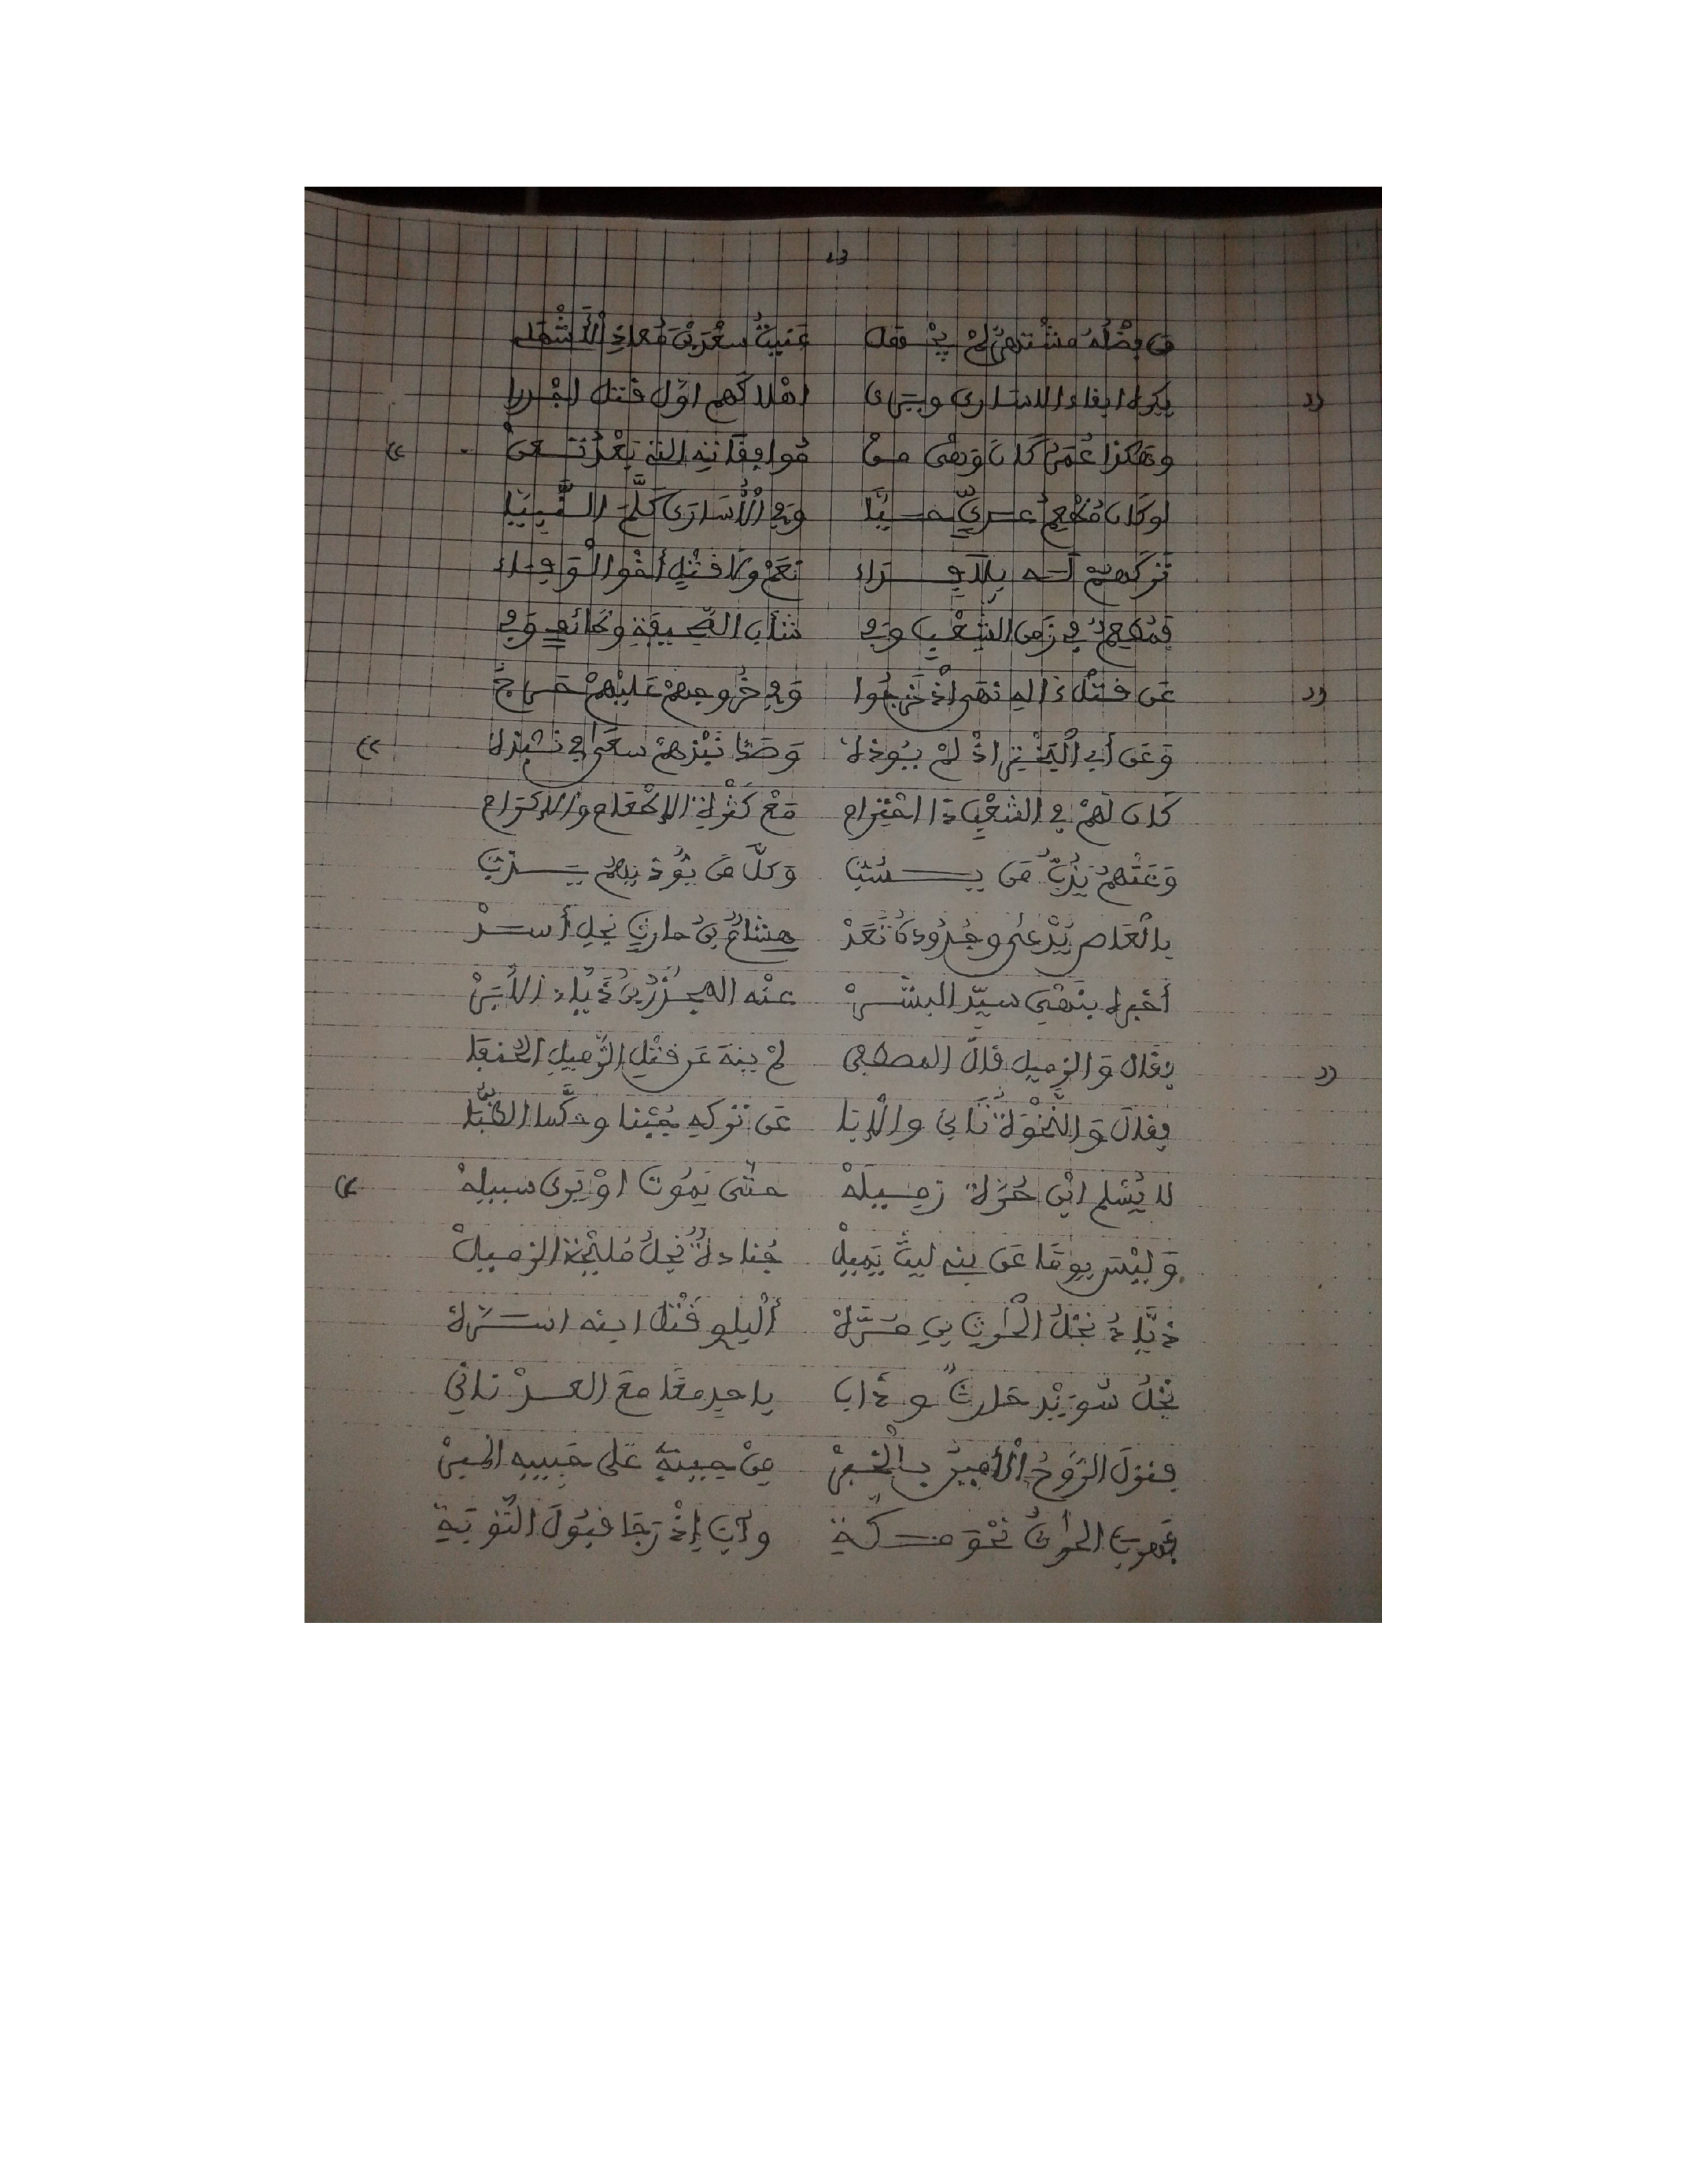 23
من فضله مشتهر لم يجهل عنيت سعد بن معاذ الأشهل
يكره ابقاء الاسارى ويرى اهلاكهم اول قتل اجدرا
وهكذا عمر كان وهي من موافقاته التي بعد تعن
لو كان مطعم عدي حيا وفي الأسارى كلم النبيا
تركهم له بلا فداء نعم ولا قتل أخو الوفاء
فمطعم في زمن الشعب وفي شأن الصحيفة وطائف وفي
عن قتل ذا اله نهى اذ خرجوا وفي خروجهم عليهم حرج
وعن أبي البختري اذ لم يوذه وصك نبزهم سعى في نبذه
كان لهم في الشعب ذا احترام مع كثرة الإطعام والإكرام
وعنهم يذب من يسب وكل من يوذيهم يسب
بالعاص يدعى وجدوده تعد هشام بن حارث نجل أسد
أخبره بنهي سيد البشر عنه المجذر بن ذياد الأبر
فقال والزميل قال المصطفى لم ينه عن قتل الزميل الحنفا
فقال والنخوة تأبى والإبا عن تركه جبنا وحكما الظبا
لا يسلم ابن حرة زميله حتى يموت او يرى سبيله
وليس يوما عن بنه ليث يميل جنادة نجل مليحة الزميل
ذياد نجل الحارث بن مره أليلو قتل ابنه استره
نجل سويد حارث وذاب ياحد معا مع العد ناني
فنزل الروح الأمين بالخبر من جيبه على حبيبه الخبر
فهرب الحارث نحو مكة وآب إذ رجا قبول التوبة